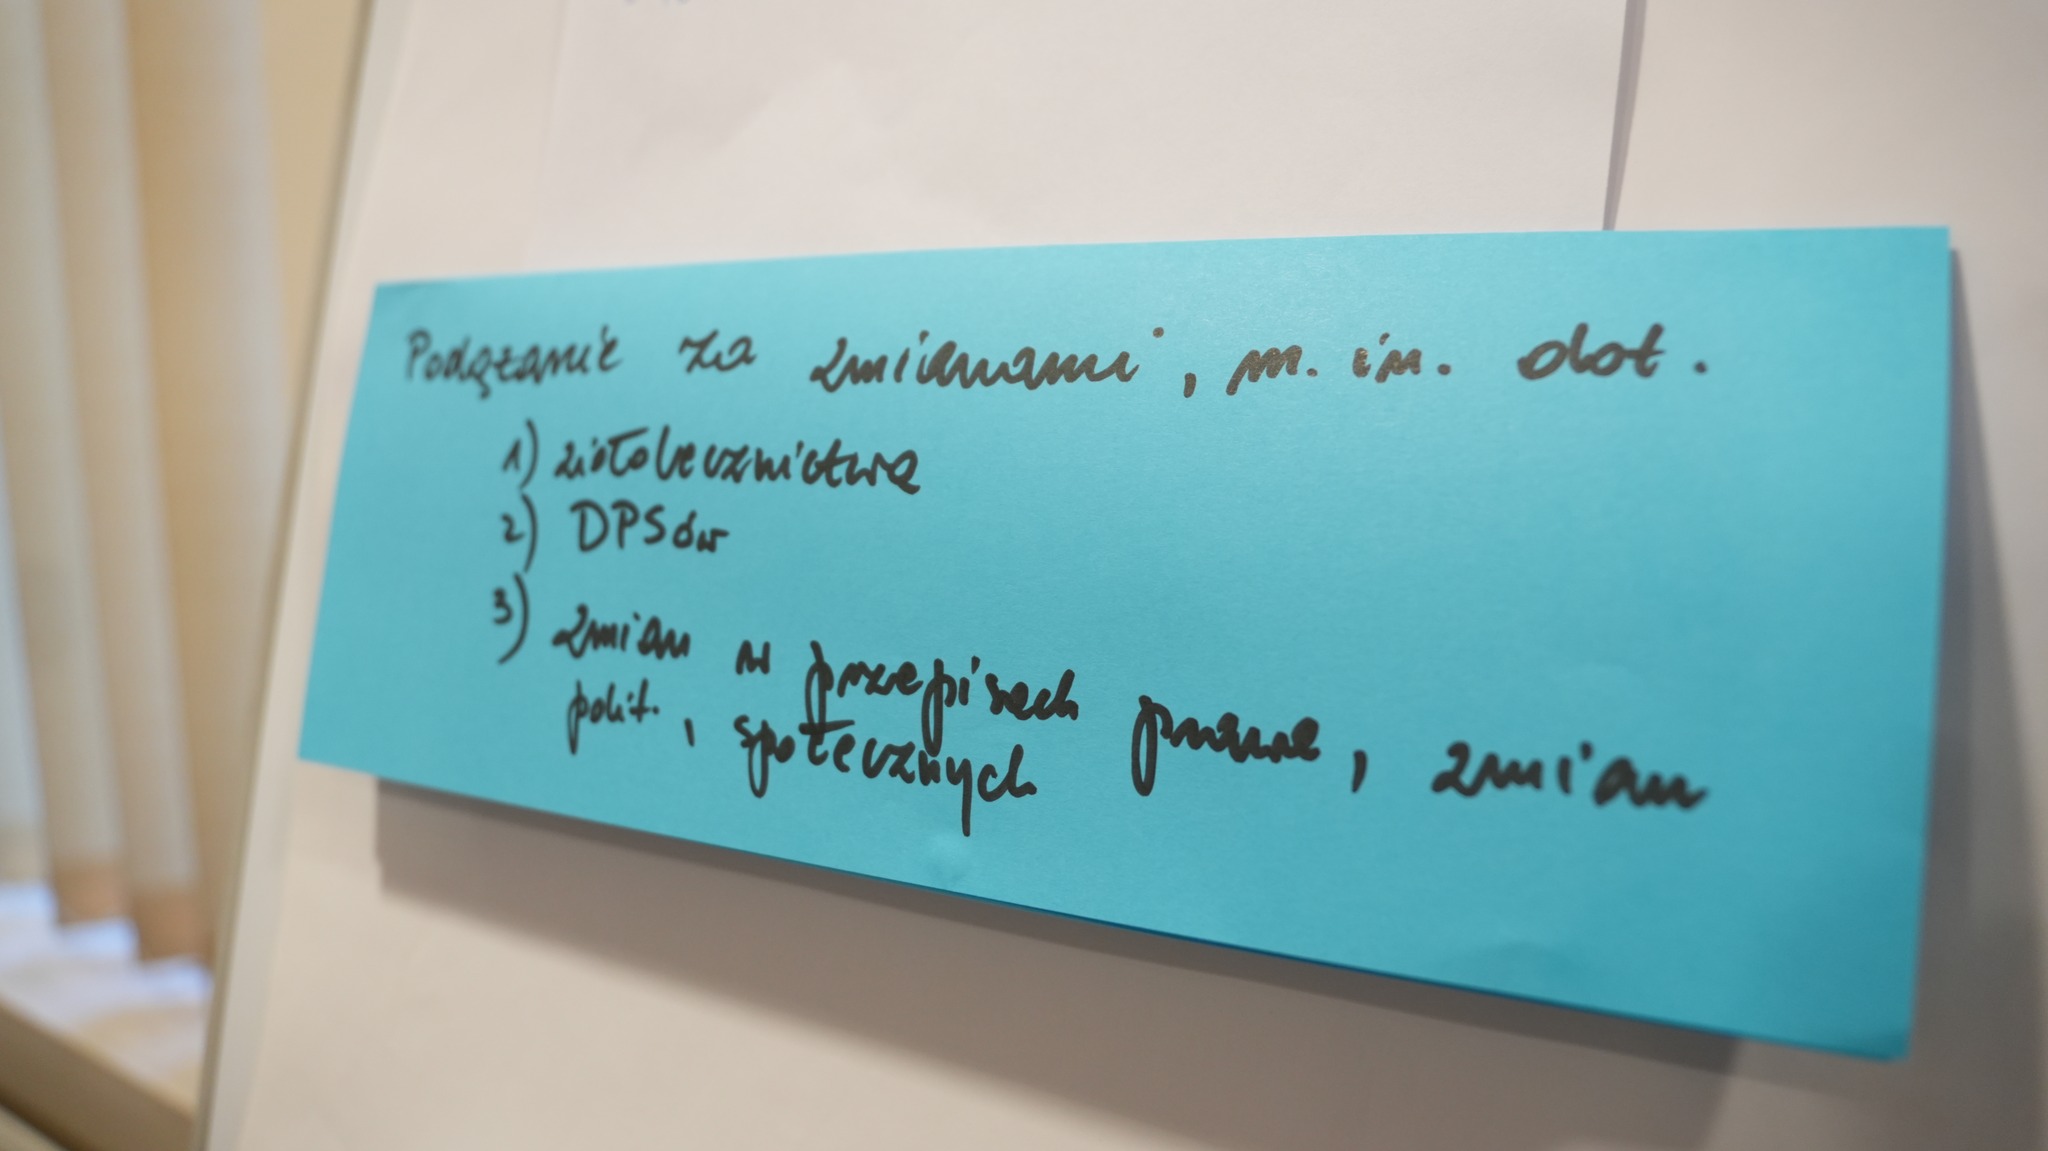 Podążanie za zmianami, m. in. dot.
1) ziołolecznictwa
2) DPSów
3) zmian w przepisach prawa, zmian
polit., społecznych